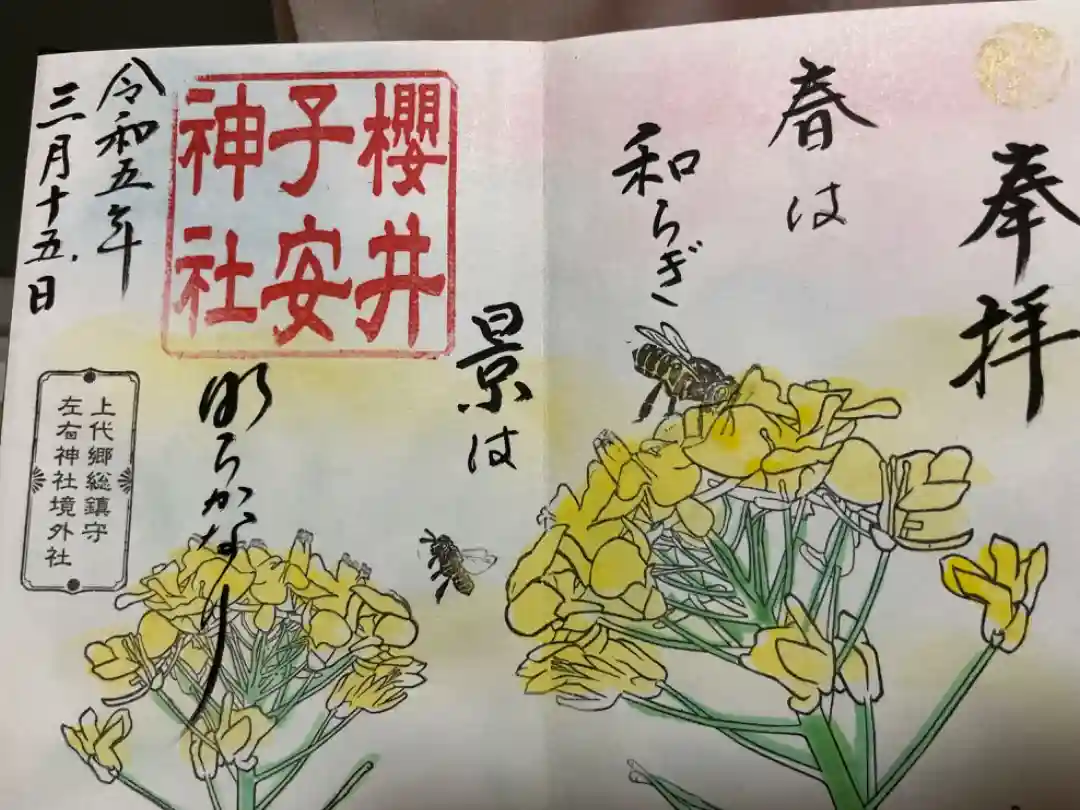 奉拝
春は
和らぎ
景は
明らかなり
櫻井
子安
神社
令和五年
三月十五日
上代郷総鎮守
左右神社境外社